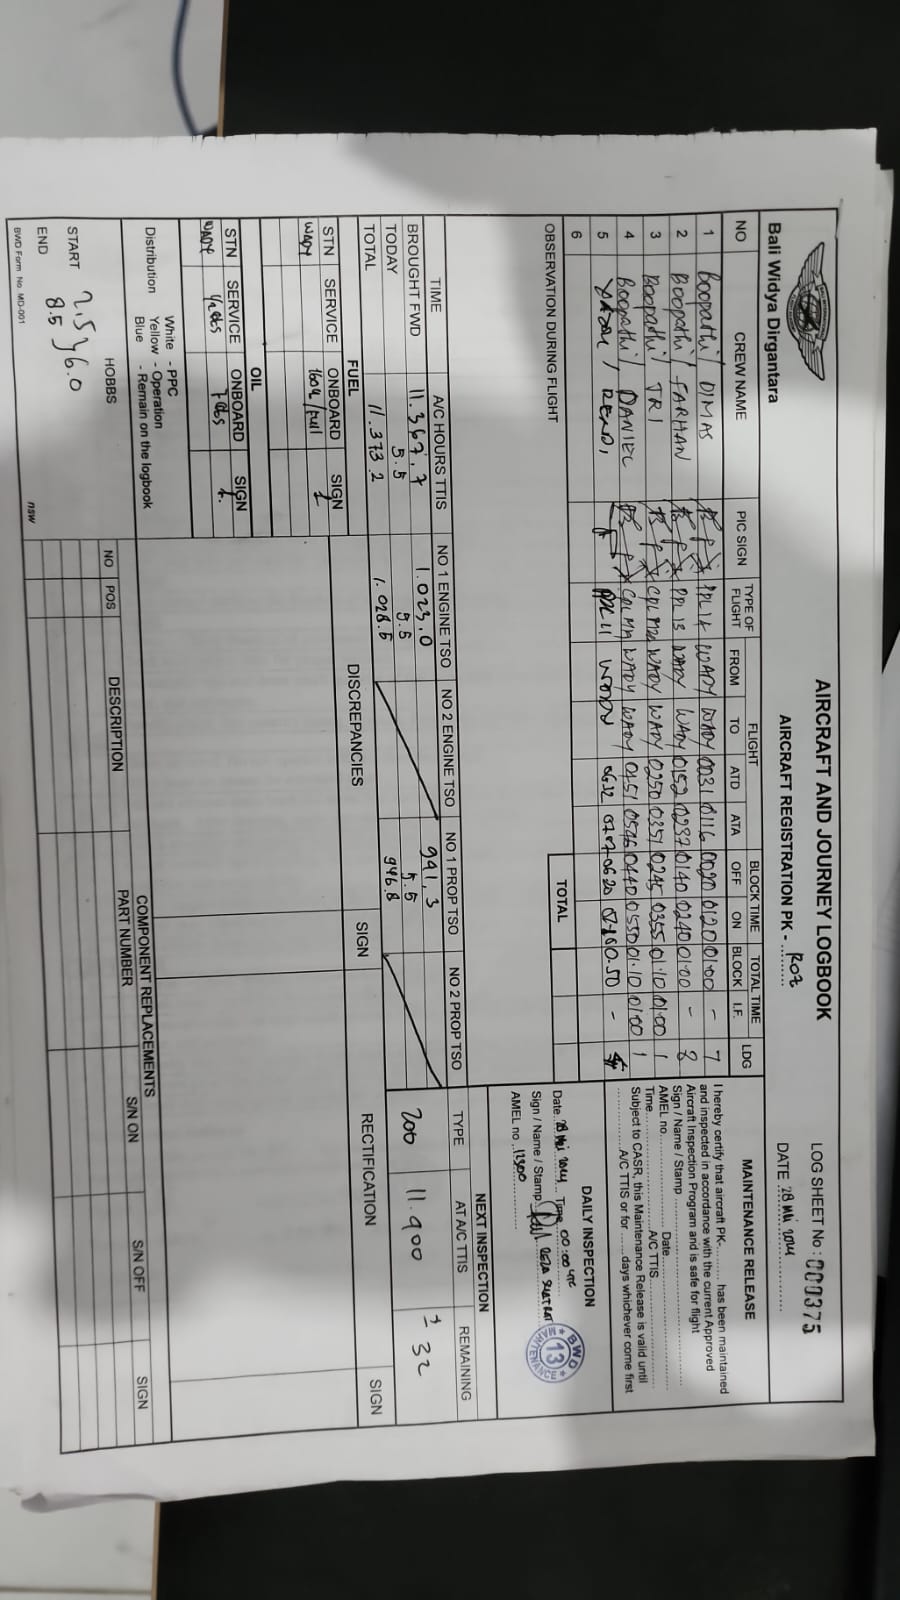 AIRCRAFT AND JOURNEY LOGBOOK
LOG SHEET No : 000375
Bali Widya Dirgantara
AIRCRAFT REGISTRATION PK - ROZ
DATE 28 Mei 2024
NO CREW NAME PIC SIGN TYPE OF FLIGHT FLIGHT FROM TO ATD ATA BLOCK TIME OFF ON TOTAL TIME BLOCK I.F. LDG
1 Boopathi / DIMAS PPL 14 WADY WADY 0031 0116 0020 0120 01:00 - 7
2 Boopathi / FARHAN PPL 13 WADY WADY 0152 0237 0140 0240 01:00 - 8
3 Boopathi / TRI CPL WADY WADY 0250 0351 0245 0355 01:10 01:00 1
4 Boopathi / DANIEL CPL WADY WADY 0451 0546 0440 0550 01:10 01:00 1
5 PPL 11 WADY 0632 0707 0620 0.50 -
6
TOTAL
OBSERVATION DURING FLIGHT
MAINTENANCE RELEASE
I hereby certify that aircraft PK-.......... has been maintained
and inspected in accordance with the current Approved
Aircraft Inspection Program and is safe for flight
Sign / Name / Stamp
AMEL no. Date
Time A/C TTIS
Subject to CASR, this Maintenance Release is valid until
A/C TTIS or for ......days whichever come first
DAILY INSPECTION
Date 28 Mei 2024 Time 00:00 UTC
Sign / Name / Stamp
AMEL no 11300
BWD 13 MAINTENANCE
TIME A/C HOURS TTIS NO 1 ENGINE TSO NO 2 ENGINE TSO NO 1 PROP TSO NO 2 PROP TSO
BROUGHT FWD 11.367,7 1.023,0 941,3
TODAY 5.5 5.5 5.5
TOTAL 11.373.2 1.028.5 946.8
NEXT INSPECTION
TYPE AT A/C TTIS REMAINING
200 11.400 ± 32
FUEL
STN SERVICE ONBOARD SIGN
WADY 160L/full
OIL
STN SERVICE ONBOARD SIGN
WADY 1/2 qts 7 qts
DISCREPANCIES SIGN RECTIFICATION SIGN
Distribution White - PPC
Yellow - Operation
Blue - Remain on the logbook
COMPONENT REPLACEMENTS
NO POS DESCRIPTION PART NUMBER S/N ON S/N OFF SIGN
HOBBS
START 2.536.0
END 8.5
BWD Form No. MD-001
nsw